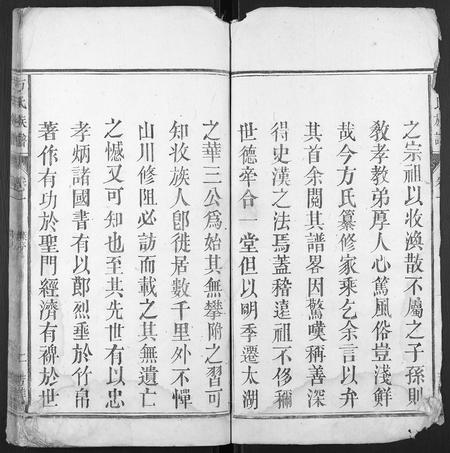 之宗祖以收渙散不屬之子孫則
教孝教弟厚人心篤風俗豈淺鮮
哉今方氏纂修家乘乞余言以弁
其首余閱其譜畧因驚嘆稱善深
得史漢之法焉蓋稽遠祖不侈稱
世德牽合一堂但以明季遷太湖
之華三公爲始其無攀附之習可
知收族人卽徙居數千里外不憚
山川修阻必訪而載之其無遺亡
之憾又可知也至其先世有以忠
孝炳諸國書有以鄭烈垂於竹帛
著作有功於聖門經濟有裨於世
方氏族譜